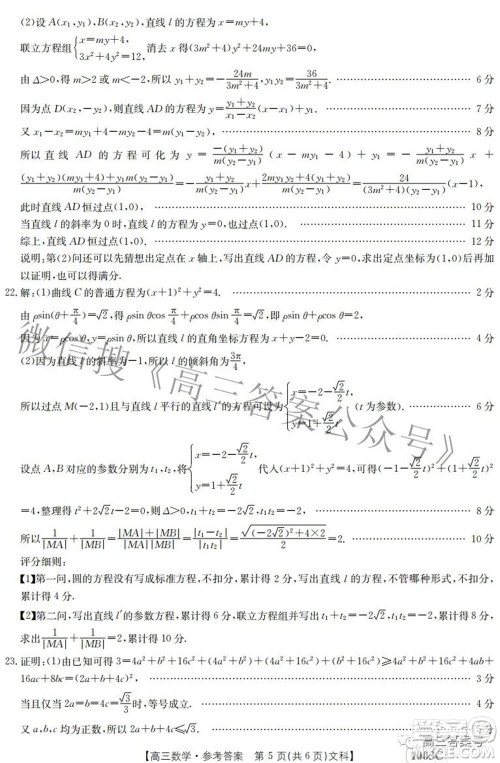 (2)设 A(x₁,y₁),B(x₂,y₂),直线 l 的方程为 x=my+4,
联立方程组{x=my+4, 3x²+4y²=12, 消去 x 得(3m²+4)y²+24my+36=0,
由 Δ>0,得 m>2 或 m<-2,所以 y₁+y₂=-24m/(3m²+4),y₁y₂=36/(3m²+4). …… 6 分
因为点 D(x₂,-y₂),则直线 AD 的方程为 y=(y₁+y₂)/(x₁-x₂)(x-x₁)+y₁. …… 7 分
又 x₁-x₂=my₁+4-my₂-4=m(y₁-y₂), …… 8 分
所以直线 AD 的方程可化为 y=-(y₁+y₂)/m(y₂-y₁)(x-my₁-4)+y₁=-(y₁+y₂)/m(y₂-y₁)x+
(y₁+y₂)(my₁+4)+y₁m(y₂-y₁)/m(y₂-y₁)=-(y₁+y₂)/m(y₂-y₁)x+2my₁y₂+4(y₁+y₂)/m(y₂-y₁)=24/(3m²+4)(y₂-y₁)(x-1),
此时直线 AD 恒过点(1,0). …… 10 分
当直线 l 的斜率为 0 时,直线 l 的方程为 y=0,也过点(1,0). …… 11 分
综上,直线 AD 恒过点(1,0). …… 12 分
说明:第(2)问还可以先猜想出定点在 x 轴上,写出直线 AD 的方程,令 y=0,求出定点坐标为(1,0)后再加
以证明,也可以得满分.
22.解:(1)曲线 C 的普通方程为(x+1)²+y²=4. …… 2 分
由 ρsin(θ+π/4)=√2,得 ρcosθ+ρsinθ=√2·√2,即 ρsin(θ+π/4)=√2,
因为 x=ρcosθ,y=ρsinθ,所以直线 l 的直角坐标方程为 x+y-2=0.
(2)因为直线 l 的斜率为-1,所以 l 的倾斜角为3π/4,
所以过点 M(-2,1)且与直线 l 平行的直线 l′的方程可设为{x=-2-√2/2t, y=1+√2/2t (t 为参数). …… 6 分
设点 A,B 对应的参数分别为 t₁,t₂,将{x=-2-√2/2t, y=1+√2/2t 代入(x+1)²+y²=4,可得(-1-√2/2t)²+(1+√2/2t)²
=4,整理得 t²+2√2t-2=0,则 Δ>0,t₁+t₂=-2√2,t₁t₂=-2, …… 8 分
所以1/|MA|+1/|MB|=(|MA|+|MB|)/(|MA||MB|)=|t₁-t₂|/|t₁t₂|=√((-2√2)²+4×2)/2=2. …… 10 分
评分细则:
【1】第一问,圆的方程没有写成标准方程,不扣分,累计得 2 分,写出直线 l 的方程,不管哪种形式,不扣分,
累计得 4 分.
【2】第二问,写出直线 l′的参数方程,累计得 6 分,联立方程组并写出 t₁+t₂=-2√2,t₁t₂=-2,累计得 8 分,
求出1/|MA|+1/|MB|=2,累计得 10 分.
23.证明:(1)由已知可得 3=4a²+b²+16c²=(4a²+b²)+(4a²+16c²)+(b²+16c²)≥4a²+b²+16c²+4ab+
16ac+8bc=(2a+b+4c)²,
当且仅当 2a=b=4c=√3/3时,等号成立. …… 4 分
又 a,b,c 均为正数,所以 2a+b+4c≤√3.
【高三数学·参考答案 第 5 页(共 6 页)文科】
微信搜《高三答案公众号》
高三答案号